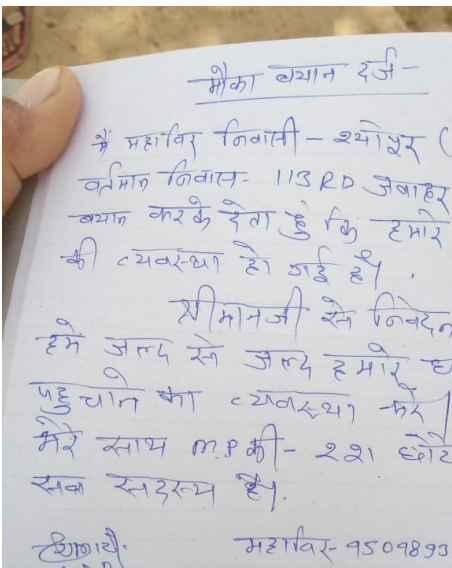 मौका बयान दर्ज -
मैं महाविर निवासी - श्योपुर (
वर्तमान निवास - 113 RD जवाहर
बयान करके देता हुं कि हमारे
की व्यवस्था हो गई है।
श्रीमानजी से निवेदन
हमे जल्द से जल्द हमारे घ
पहुचाने का व्यवस्था करे
मेरे साथ M.P की - 221 छोटे
सब सदस्य है।
महाविर - 9509893